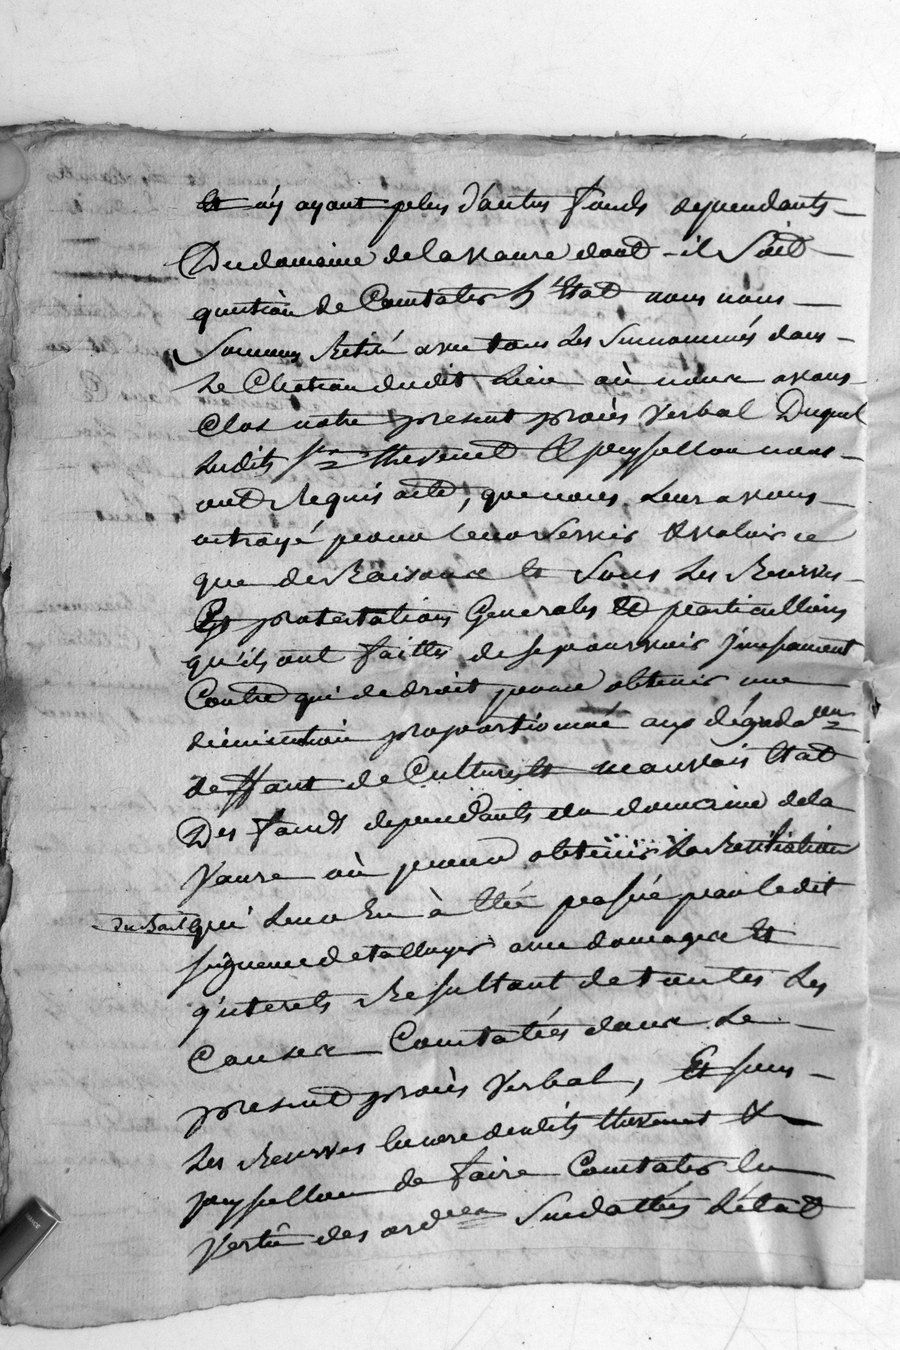 et n'y ayant plus d'autres fonds dependants
Du domaine de la vaure dont il Soit
question de Constater L'Etat nous nous
Sommes Retiré avec tous les Surnommés dans
Le Chateau dudit Lieu où nous avons
Clos notre present procès Verbal Duquel
Lesdits Srs thevenet & peyssellon nous
ont Requis acte, que nous leur avons
octroyé pour leur Servir & valoir ce
que de Raison et Sous Les Reserves
Et protestations Generales Et particullieres
qu'ils ont faittes de se pourvoir
Contre qui de droit pour obtenir une
diminution proportionné aux dégradaons
deffaut de Culture et mauvais Etat
Des fonds dependants du domaine de la
Vaure où pour obtenir La Resiliation
du Bail qui Leur En à Eté passé par ledit
seigneur detalluyer avec domages Et
interets Resultant de toutes Les
Causes Constatées dans Le
present procès Verbal, Et sous
Les Reserves encore desdits thevenet &
peyssellon de faire Constater En
Vertu des ordces Susdattées L'état